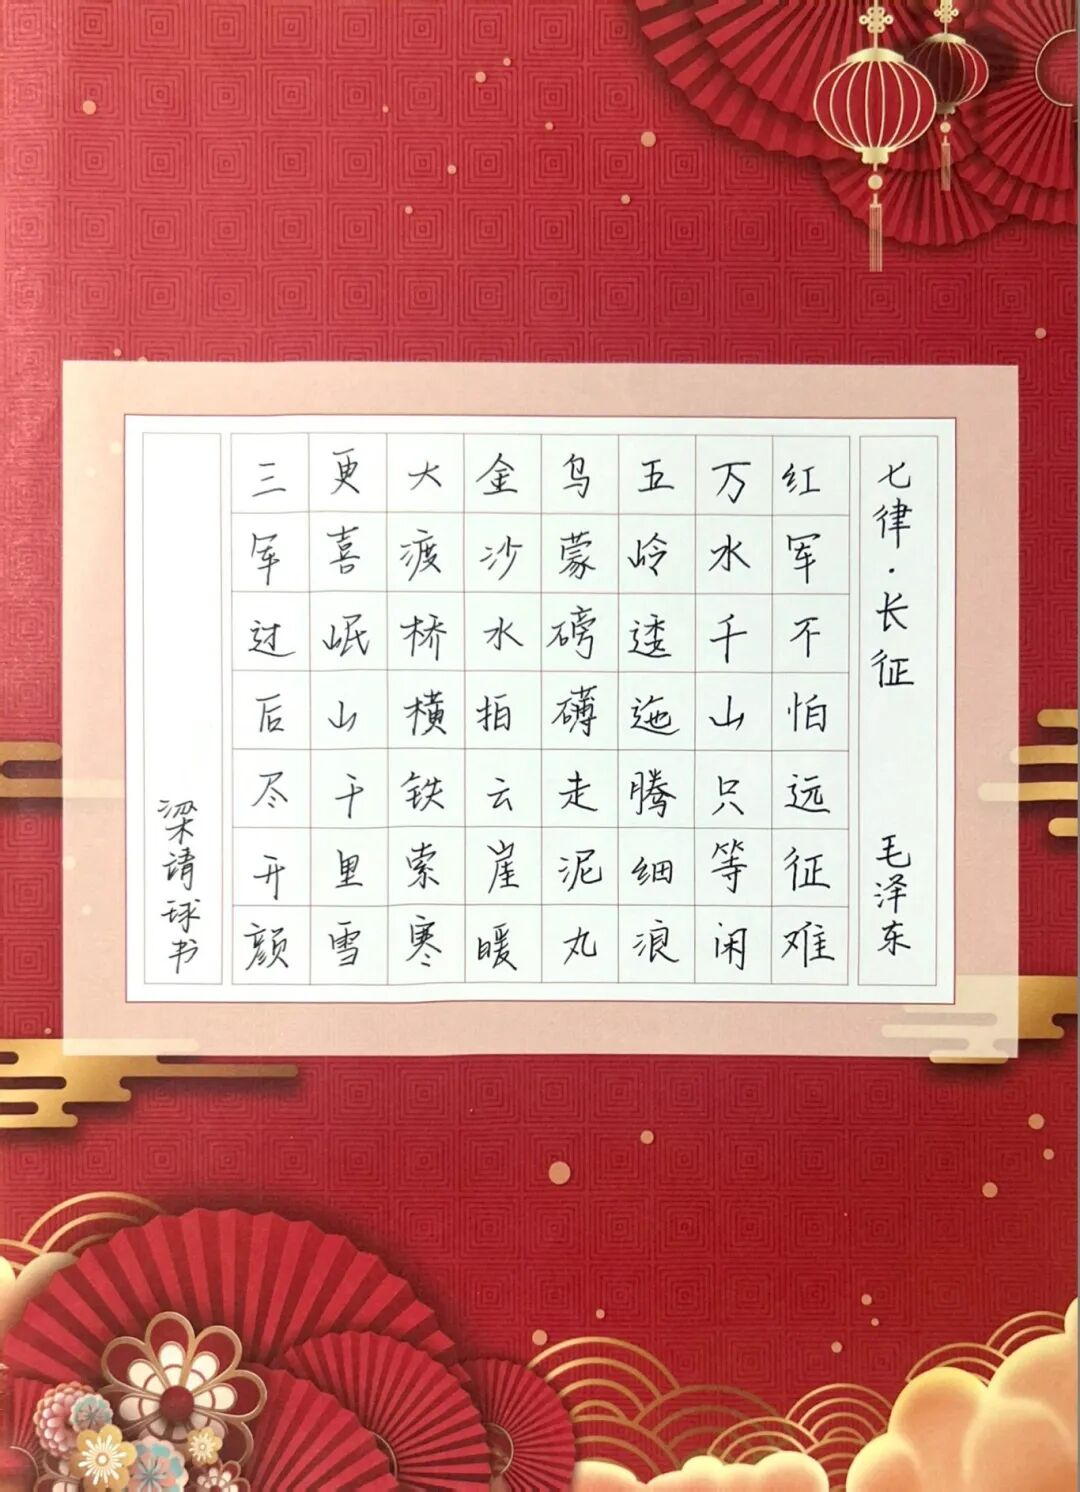 七律·长征 毛泽东
红军不怕远征难
万水千山只等闲
五岭逶迤腾细浪
乌蒙磅礴走泥丸
金沙水拍云崖暖
大渡桥横铁索寒
更喜岷山千里雪
三军过后尽开颜
梁请球书